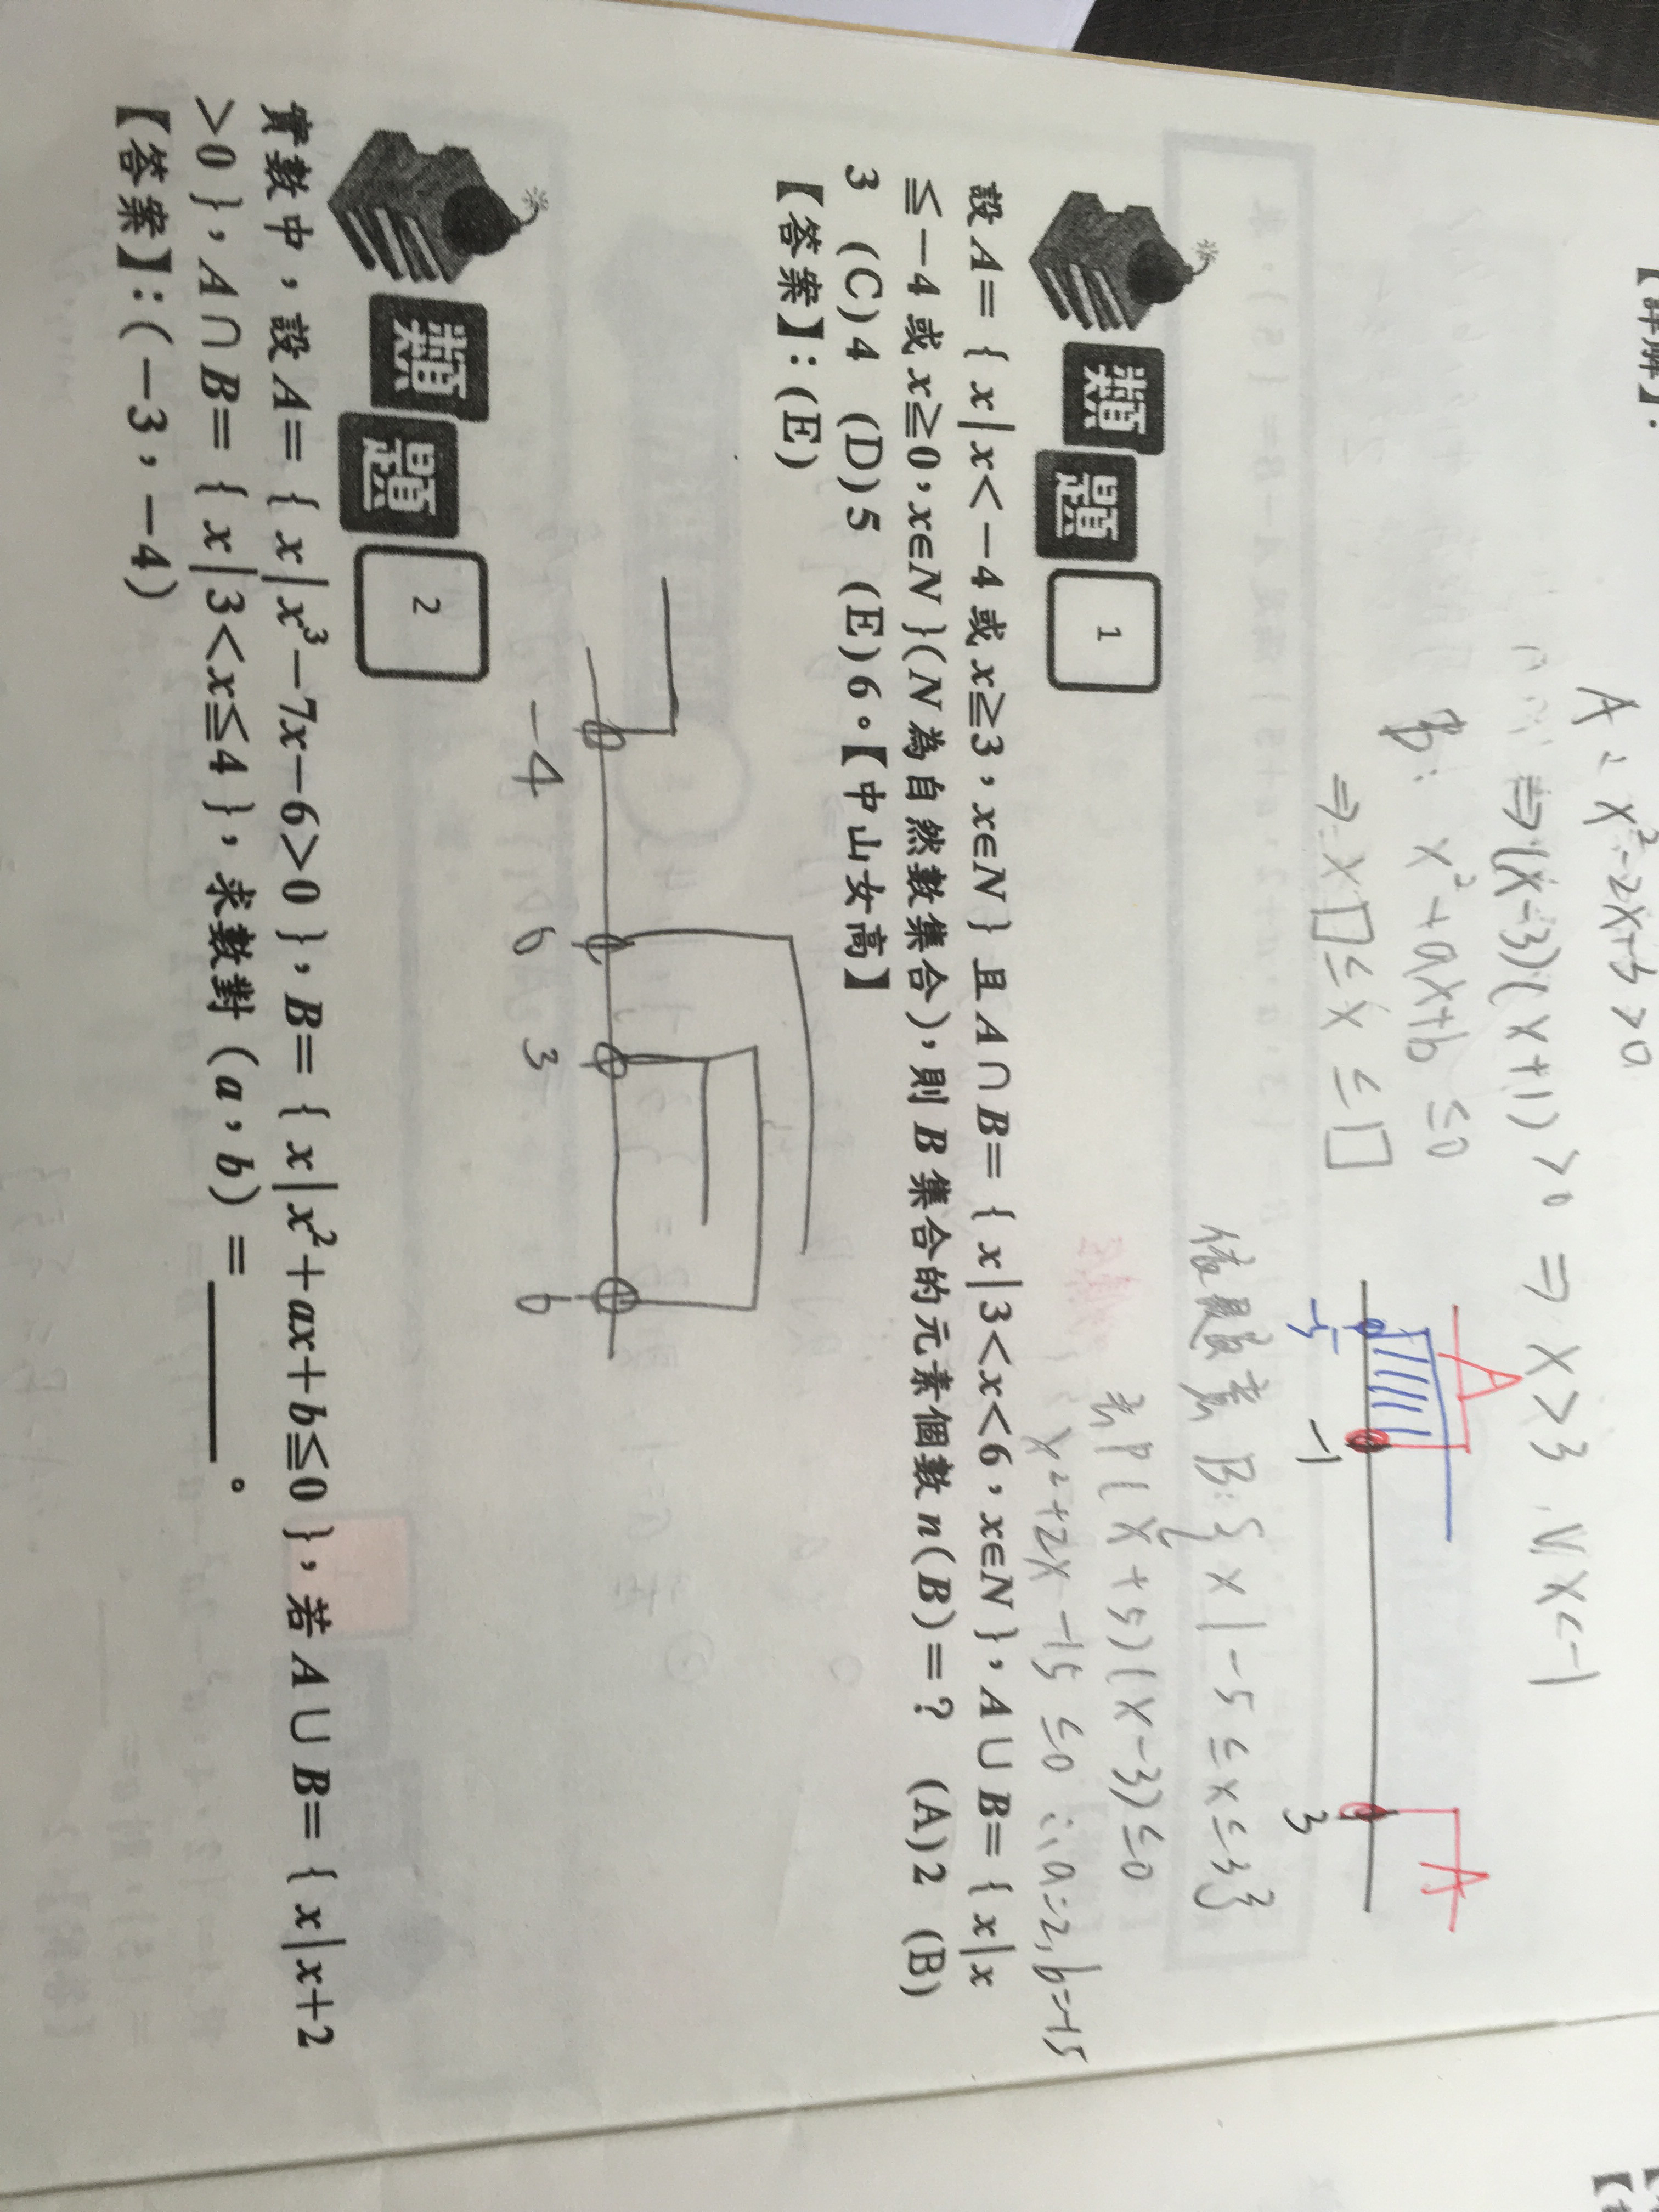 【詳解】：
A：x²-2x-3>0
⇒(x-3)(x+1)>0 ⇒ x>3 ∨ x<-1
B: x²+ax+b ≤0
⇒ x□≤x≤□
A
A
-5 -1 3
依題意 B:{x|-5≤x≤3}
(x+5)(x-3)≤0
x²+2x-15≤0 ∴a=2,b=-15
類題 1
設A={x|x<-4或x≧3,x∈N}且A∩B={x|3<x<6,x∈N},A∪B={x|x
≦-4或x≧0,x∈N}(N為自然數集合),則B集合的元素個數n(B)=? (A)2 (B)
3 (C)4 (D)5 (E)6。【中山女高】
【答案】：(E)
-4 6 3 6
類題 2
實數中,設A={x|x³-7x-6>0},B={x|x²+ax+b≦0},若A∪B={x|x+2
>0},A∩B={x|3<x≦4},求數對(a,b)=______。
【答案】：(-3,-4)